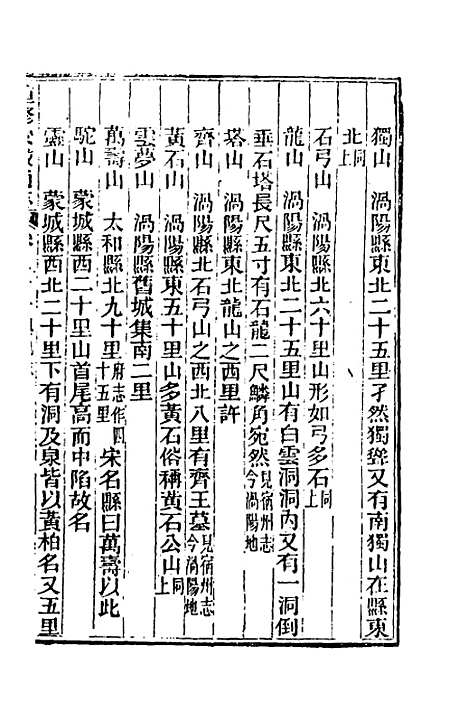 獨山　渦陽縣東北二十五里孑然獨聳又有南獨山在縣東
北同上
石弓山　渦陽縣北六十里山形如弓多石同上
龍山　渦陽縣東北二十五里山有白雲洞洞內又有一洞倒
垂石塔長尺五寸有石龍二尺鱗角宛然見宿州志今渦陽地
塔山　渦陽縣東北龍山之西里許
齊山　渦陽縣北石弓山之西北八里有齊王墓見宿州志今渦陽地
黃石山　渦陽縣東五十里山多黃石俗稱黃石公山同上
雲夢山　渦陽縣舊城集南二里
萬壽山　太和縣北九十里府志作四十五里宋名縣曰萬壽以此
駝山　蒙城縣西二十里山首尾高而中陷故名
靈山　蒙城縣西北二十里下有洞及泉皆以黃柏名又五里